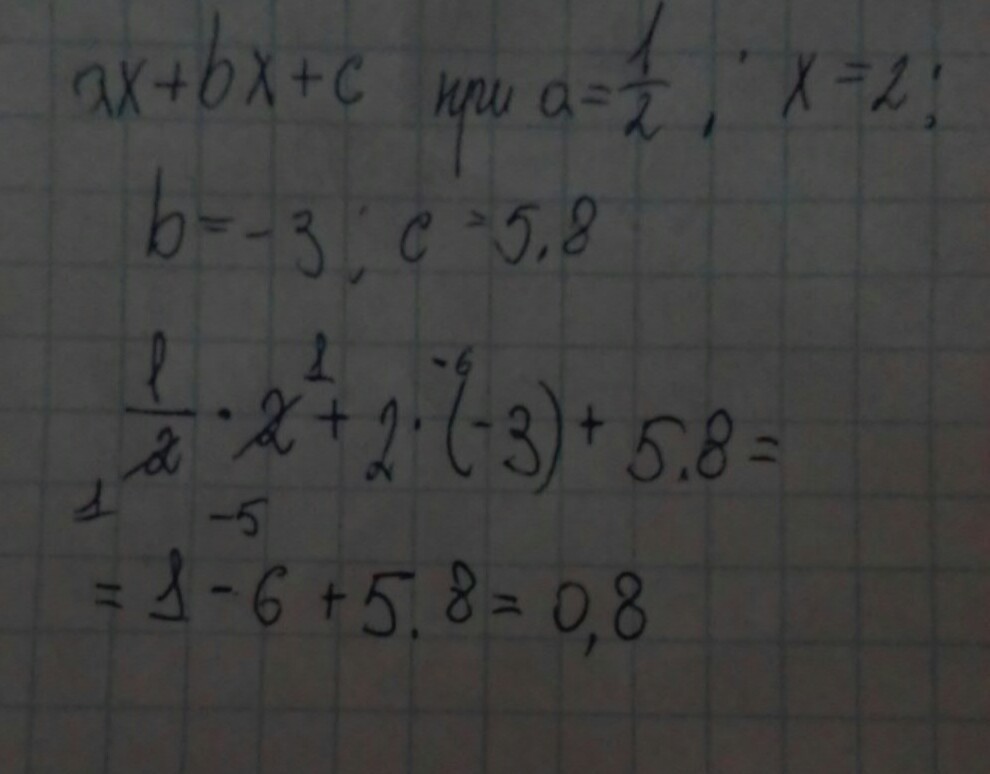 ax+bx+c при a=1/2; x=2;
b=-3; c=5.8
1 -6
1/2·2+2·(-3)+5.8=
1 -5
=1-6+5.8=0,8